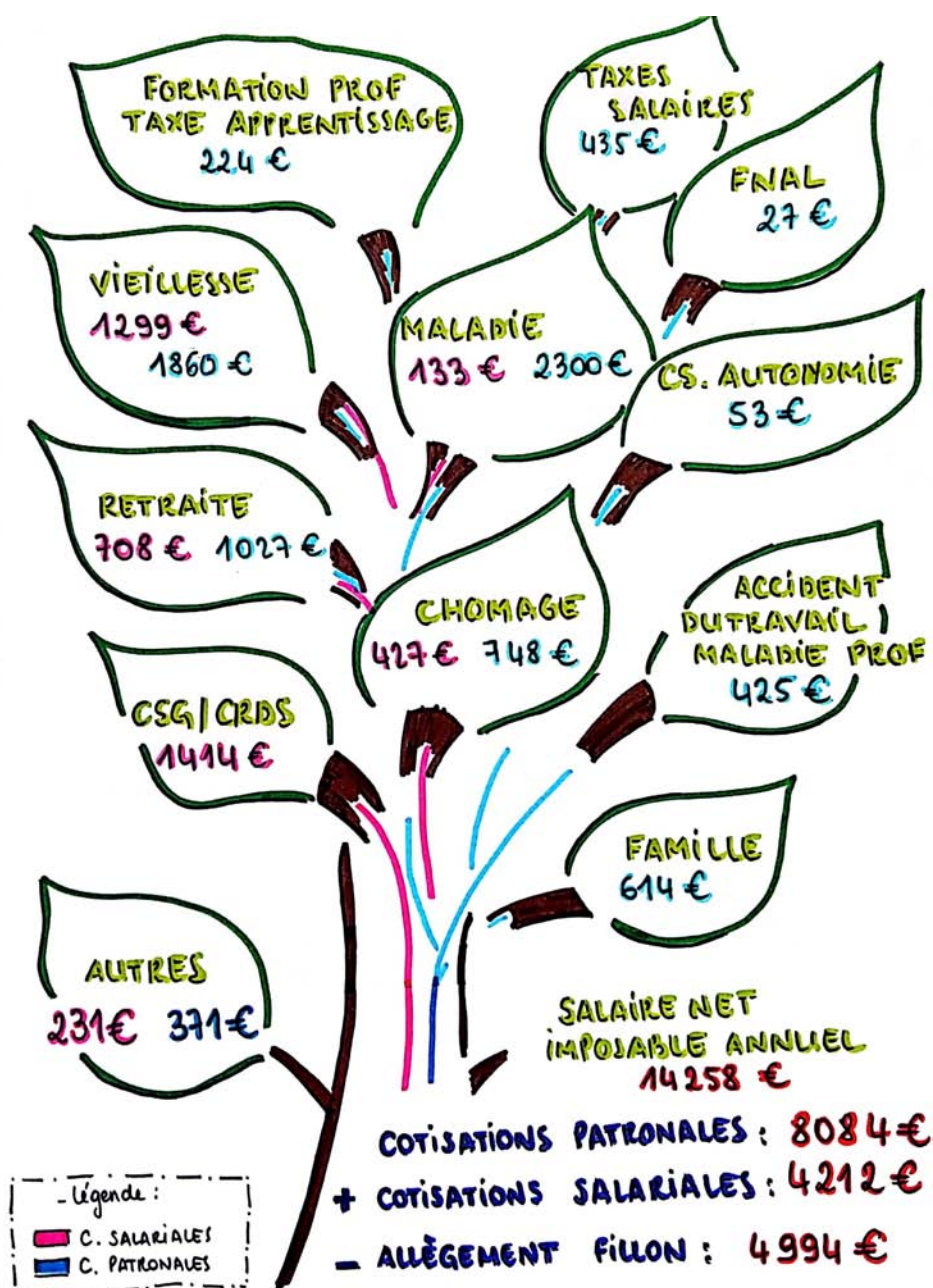 FORMATION PROF
TAXE APPRENTISSAGE
224 €
TAXES
SALAIRES
435 €
FNAL
27 €
VIEILLESSE
1299 €
1860 €
MALADIE
133 € 2300 €
CS. AUTONOMIE
53 €
RETRAITE
708 € 1027 €
CHOMAGE
427 € 748 €
ACCIDENT
DU TRAVAIL /
MALADIE PROF
425 €
CSG/CRDS
1414 €
FAMILLE
614 €
AUTRES
231 € 371 €
SALAIRE NET
IMPOSABLE ANNUEL
14258 €
COTISATIONS PATRONALES : 8084 €
+ COTISATIONS SALARIALES : 4212 €
- ALLÈGEMENT FILLON : 4994 €
- Légende :
C. SALARIALES
C. PATRONALES